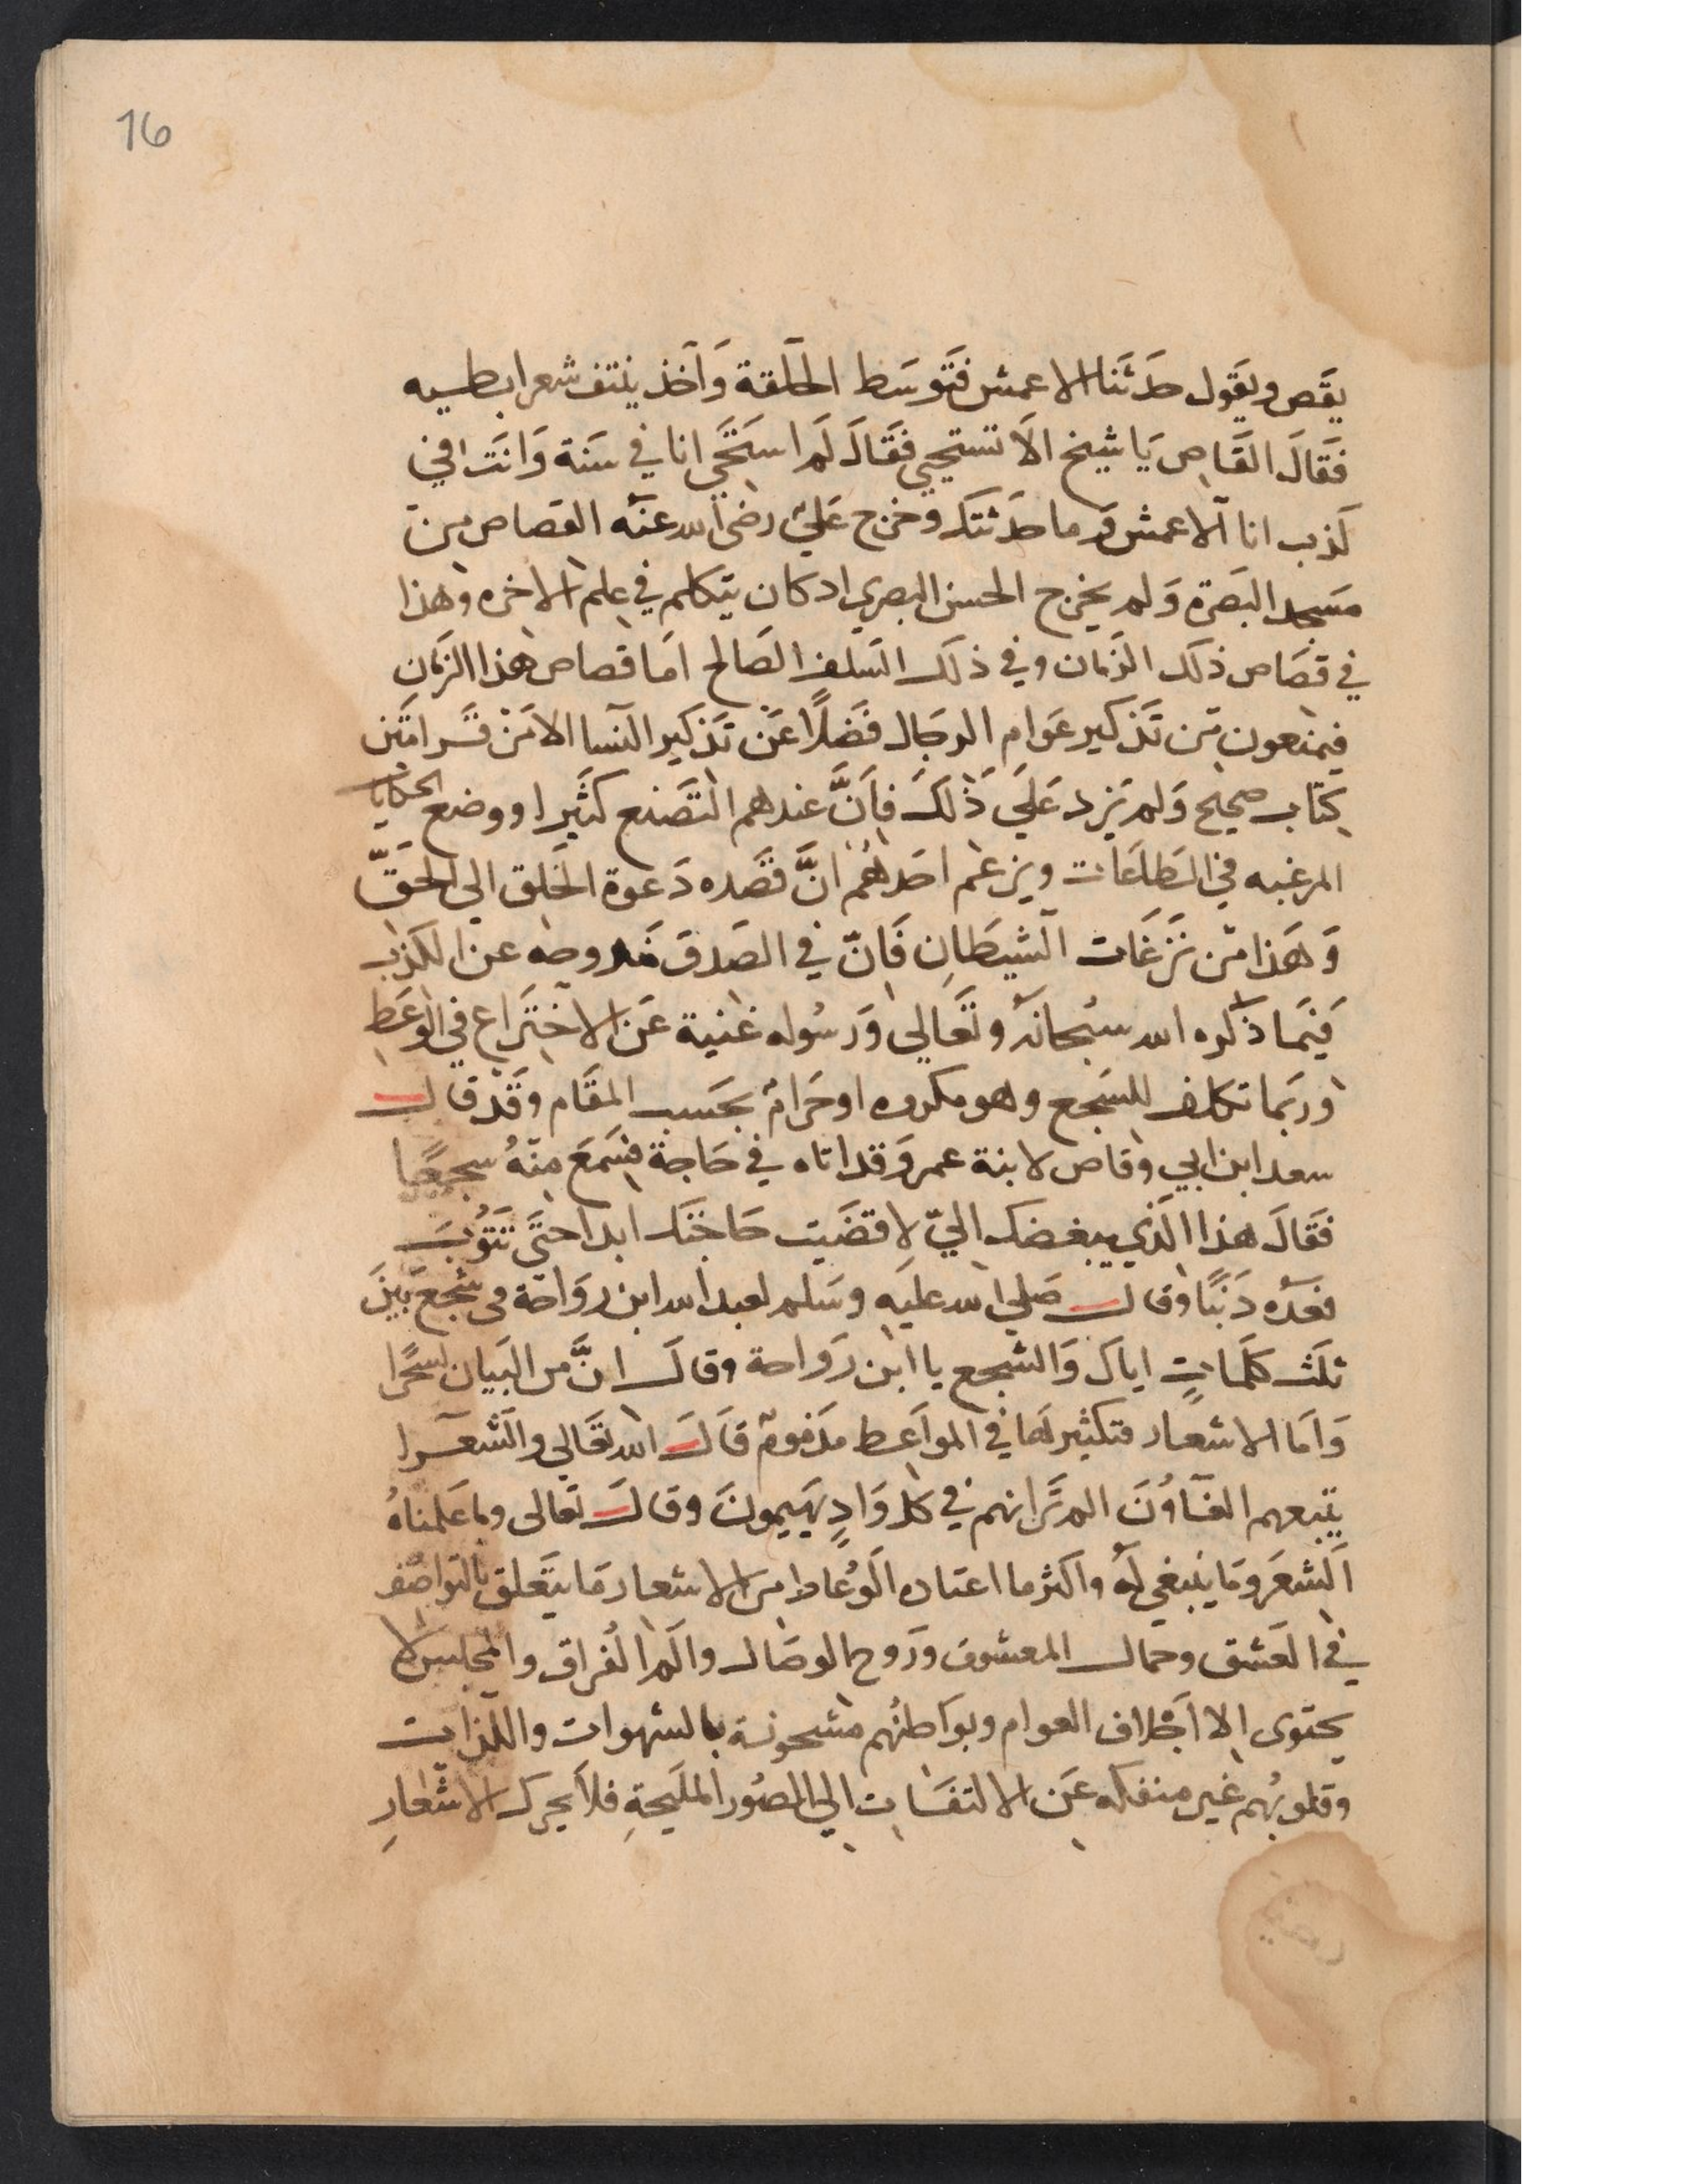 16
يقص ويقول حدثنا الاعمش فتوسط الحلقة واخذ ينتف شعر ابطيه
فقال القاص يا شيخ الا تستحيي فقال لم استحي انا في سنة وانت في
كذب انا الاعمش وما حدثتك وخرج علي رضي الله عنه القصاص من
مسجد البصرة ولم يخرج الحسن البصري اد كان يتكلم في علم الاخره وهذا
في قصاص ذلك الزمان وفي ذلك السلف الصالح اما قصاص هذا الزمان
فيمنعون من تذكير عوام الرجال فضلًا عن تذكير النسا الا من قرا متن
كتاب صحيح ولم يزد علي ذلك فانَّ عندهم التصنع كثيرا ووضع الحكايات
المرغبه في الطاعات ويزعم احدهم انَّ قصده دعوة الخلق الي الحقّ
وهذا من نزغات الشيطان فانّ في الصدق مندوحه عن الكذب
فيما ذكره الله سبحانه وتعالي ورسوله غنية عن الاختراع في الوعط
وربما تكلف للسجع وهو مكروه او حرام بحسب المقام وقد قال
سعد ابن ابي وقاص لابنة عمر وقد اتاه في حاجة فسمع منه سجعًا
فقال هذا الذي يبغضك اليّ لا قضيت حاجتك ابدا حتي تتوب
فعده دنبًا وقال صلي الله عليه وسلم لعبد الله ابن رواحة في سجع بين
ثلث كلماتٍ اياك والسجع يا ابن رواحة وقال انَّ من البيان لسحرًا
واما الاشعار فتكثيرها في المواعط مذموم قال الله تعالي والشعرا
يتبعهم الغاوُن الم تر انهم في كل وادٍ يهيمون وقال تعالى وما علمناهُ
الشعر وما ينبغي له واكثر ما اعتاده الوُعاط من الاشعار ما يتعلق بالتواصف
في العشق وجمال المعشوق وروح الوصال والم الفراق والمجلس لا
يحتوى الا اجلاف العوام وبواطنُهم مشحونة بالشهوات واللذات
وقلوبُهم غير منفكه عن الالتفات الي الصُور المليحةِ فلا يحرك الاشعارِ